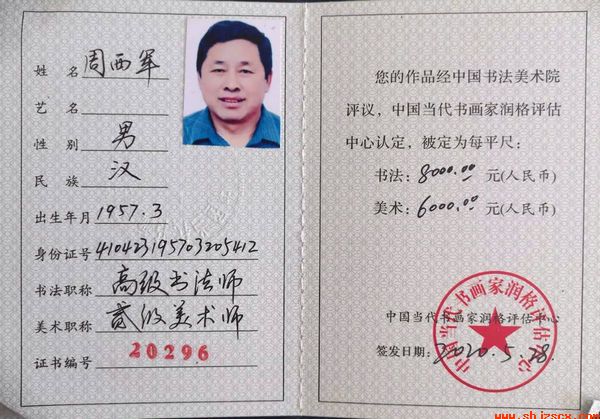 姓 名 周西军
艺 名
性 别 男
民 族 汉
出生年月 1957.3
身份证号 410423195703205412
书法职称 高级书法师
美术职称 贰级美术师
证书编号 20296
您的作品经中国书法美术院
评议，中国当代书画家润格评估
中心认定，被定为每平尺：
书法：8000.00 元(人民币)
美术：6000.00 元(人民币)
中国当代书画家润格评估中心
中国当代书画家润格评估中心
签发日期：2020.5.28.
www.shjzscx.com